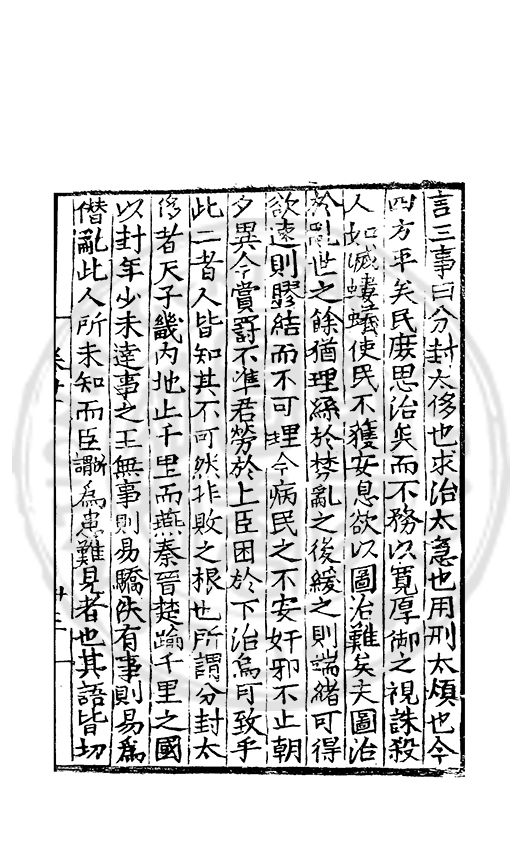 言三事曰分封太侈也求治太急也用刑太煩也今
四方平矣民庶思治矣而不務以寬厚御之視誅殺
人如滅螻蟻使民不獲安息欲以圖治難矣夫圖治
於亂世之餘猶理絲於棼亂之後緩之則端緒可得
欲速則膠結而不可理今病民之不安奸邪不止朝
夕異令賞罰不準君勞於上臣困於下治烏可致乎
此二者人皆知其不可然非敗之根也所謂分封太
侈者天子畿內地止千里而燕秦晉楚踰千里之國
以封年少未達事之王無事則易驕佚有事則易為
僭亂此人所未知而臣所謂為患難見者也其語皆切